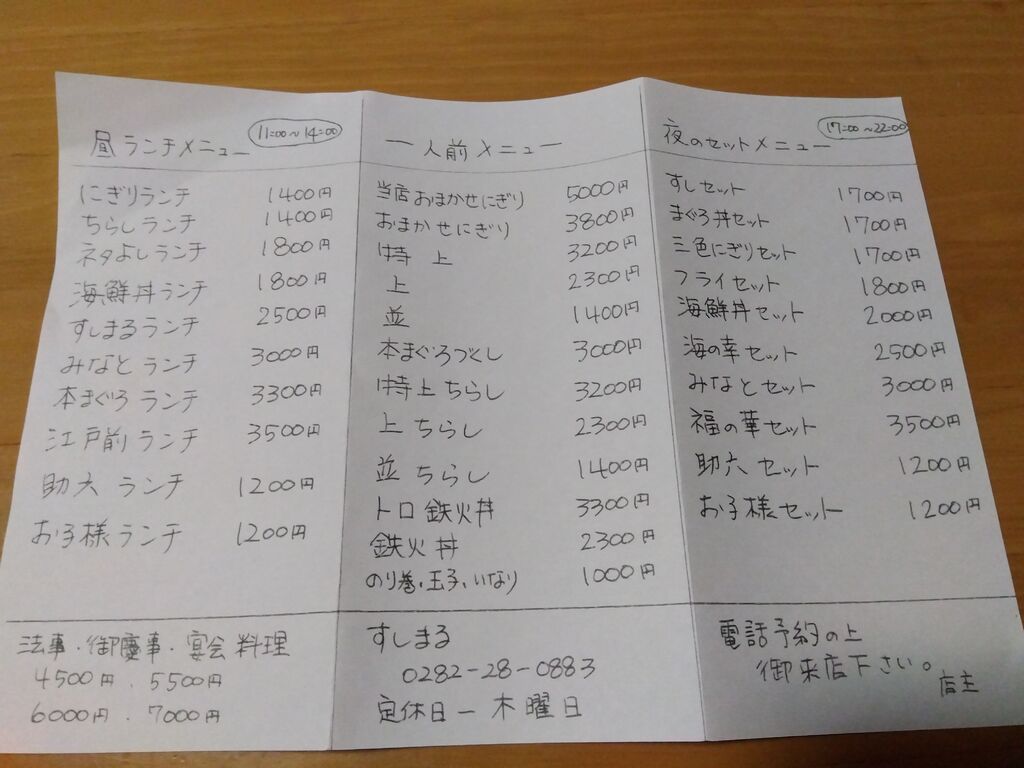 昼ランチメニュー 11:00~14:00
にぎりランチ 1400円
ちらしランチ 1400円
ネタよしランチ 1800円
海鮮丼ランチ 1800円
すしまるランチ 2500円
みなとランチ 3000円
本まぐろランチ 3300円
江戸前ランチ 3500円
助六ランチ 1200円
お子様ランチ 1200円
一人前メニュー
当店おまかせにぎり 5000円
おまかせにぎり 3800円
特上 3200円
上 2300円
並 1400円
本まぐろづくし 3000円
特上ちらし 3200円
上ちらし 2300円
並ちらし 1400円
トロ鉄火丼 3300円
鉄火丼 2300円
のり巻・玉子・いなり 1000円
夜のセットメニュー 17:00~22:00
すしセット 1700円
まぐろ丼セット 1700円
三色にぎりセット 1700円
フライセット 1800円
海鮮丼セット 2000円
海の幸セット 2500円
みなとセット 3000円
福の華セット 3500円
助六セット 1200円
お子様セット 1200円
法事・御慶事・宴会料理
4500円．5500円
6000円．7000円
すしまる
0282-28-0883
定休日ー木曜日
電話予約の上
御来店下さい。
店主